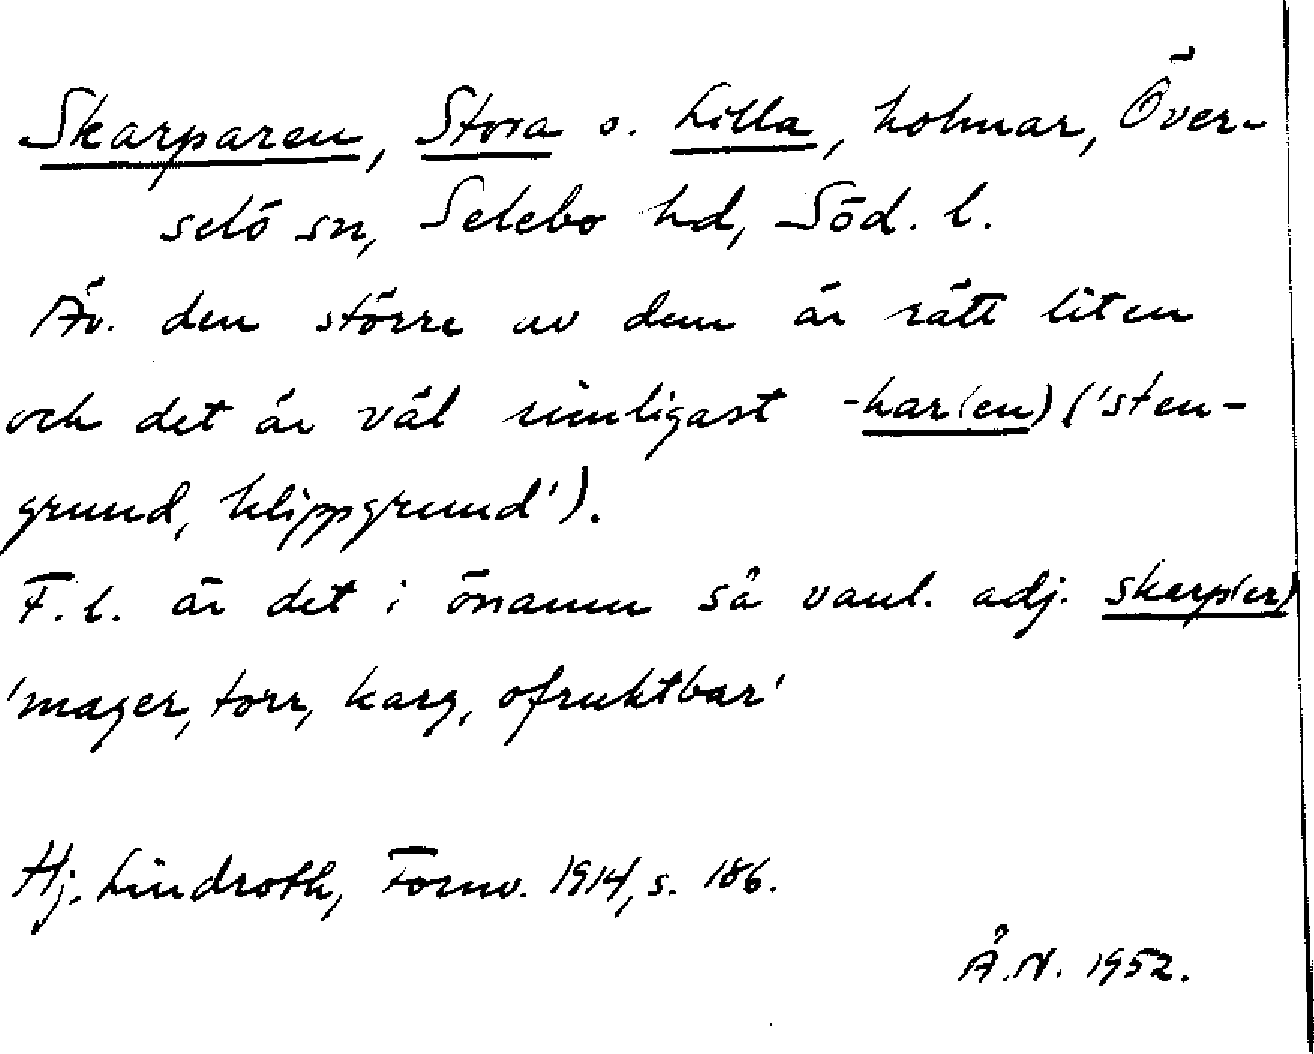 Skarparen, Stora o. Lilla, holmar, Över-
selö sn, Selebo hd, Söd. l.
Äv. den större av dem är rätt liten
och det är väl rimligast -har(en) ('sten-
grund, klippgrund').
F.l. är det i önamn så vanl. adj. skarp(er)
'mager, torr, karg, ofruktbar'
Hj. Lindroth, Fornv. 1914, s. 186.
Å.N. 1952.